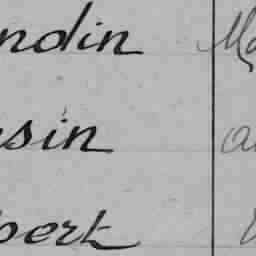 ndin Ma
sin a
bert